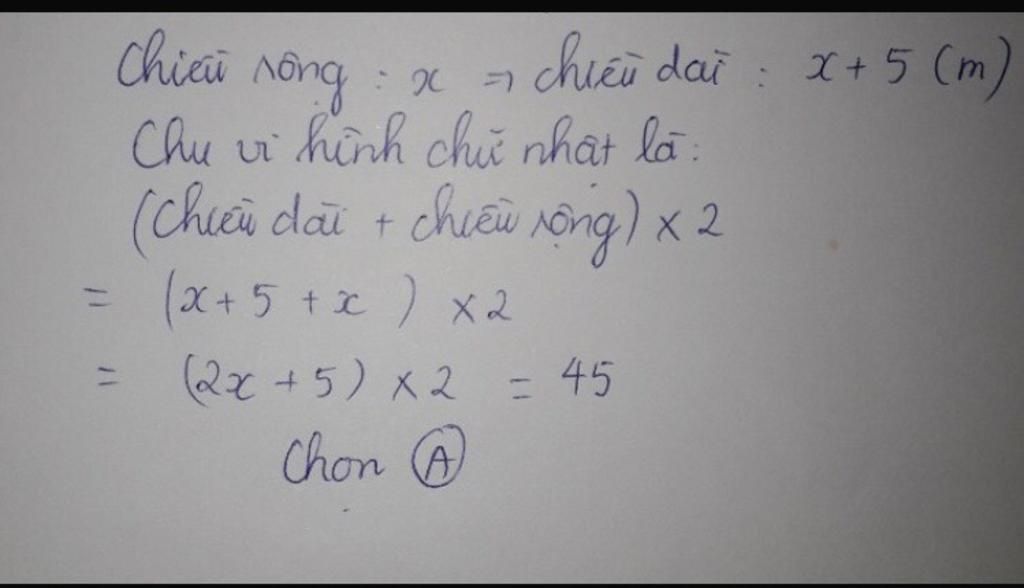 Chiều rộng : x => chiều dài : x + 5 (m)
Chu vi hình chữ nhật là :
(Chiều dài + chiều rộng) × 2
= (x + 5 + x ) × 2
= (2x + 5) × 2 = 45
Chọn A